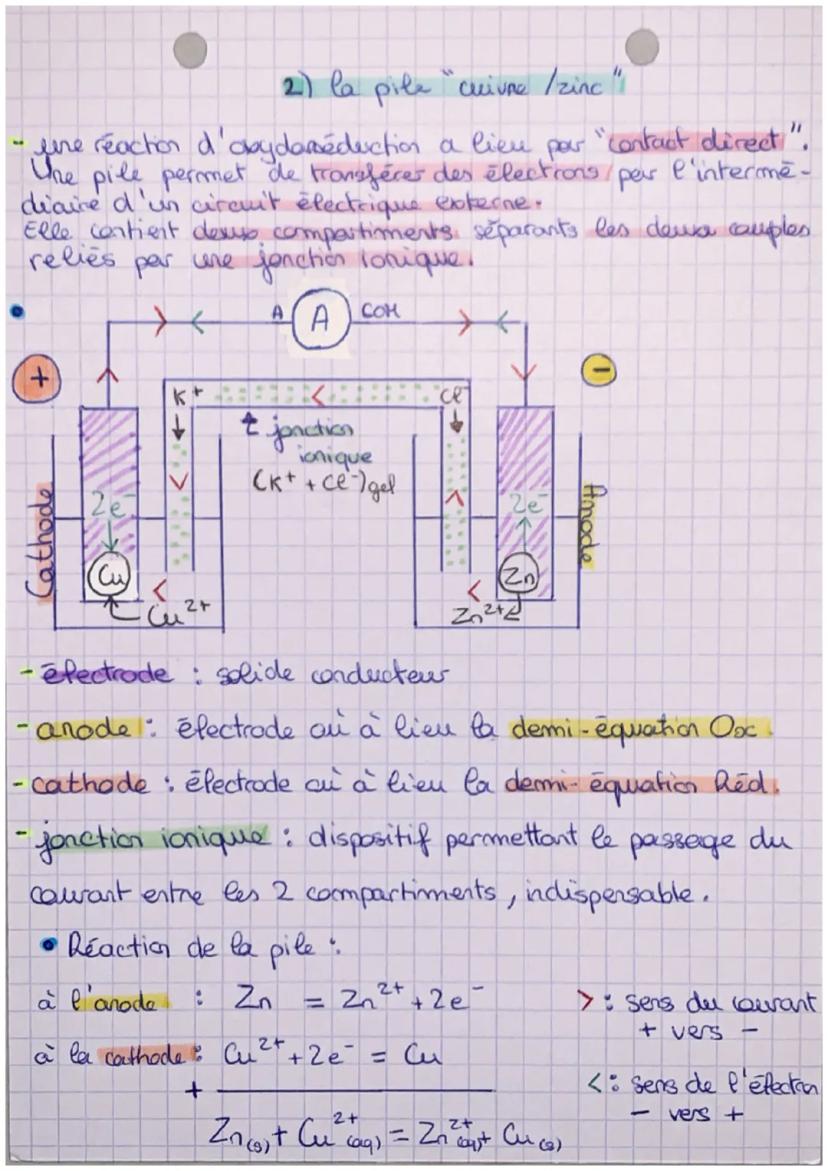 2) la pile "cuivre /zinc"
- une réaction d'oxydoréduction a lieu par "contact direct".
Une pile permet de transférer des électrons par l'intermé-
diaire d'un circuit électrique externe.
Elle contient deux compartiments séparants les deux couples
reliés par une jonction ionique.
A A COM
+ -
K+ Cl-
jonction
ionique
(K+ + Cl-)gel
Cathode 2e- 2e- Anode
Cu Zn
Cu2+ Zn2+
- électrode : solide conducteur
- anode : électrode où à lieu la demi-équation Ox.
- cathode : électrode où à lieu la demi-équation Réd.
- jonction ionique : dispositif permettant le passage du
courant entre les 2 compartiments, indispensable.
• Réaction de la pile :
à l'anode : Zn = Zn2+ + 2e-
à la cathode : Cu2+ + 2e- = Cu
+
Zn(s) + Cu2+(aq) = Zn2+(aq) + Cu(s)
> : sens du courant
+ vers -
< : sens de l'électron
- vers +